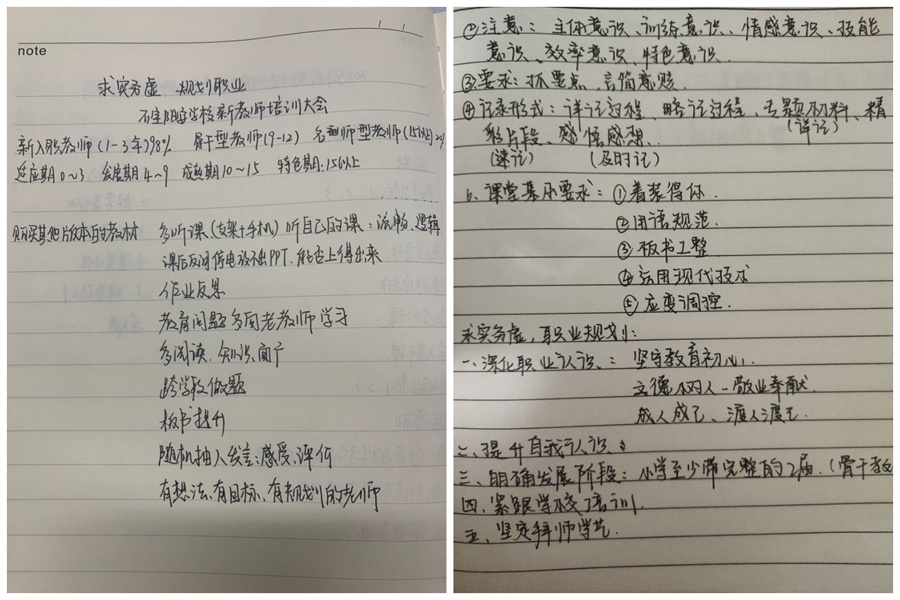 note
求实务虚 规划职业
新教师培训大会
新入职教师(1-3年)98% 骨干型教师(9-12) 名师型教师(15以上)2%
适应期0~3 发展期4~9 成熟期10~15 特色期:15以上
购买其他版本的教材 多听课(支架+手机)听自己的课:流畅、逻辑
课后反问停电放不出PPT.能否上得出来
作业反思
教育问题多向老教师学习
多阅读、知识面广
跨学校做题
板书提升
随机抽人发言、感受、评价
有想法、有目标、有规划的老师
②注意:主体意识、训练意识、情感意识、技能
意识、效率意识、特色意识.
③要求:抓要点、言简意赅.
④记录形式:详记过程、略记过程、专题材料、精
(详记)
彩片段、感悟感想.
(速记) (及时记)
6.课堂基本要求:①着装得体
②用语规范
③板书工整
④运用现代技术
⑤应变调控.
求实务虚,职业规划:
一.深化职业认识:坚守教育初心.
立德树人-敬业奉献
成人成己、渡人渡己.
二、提升自我认识.
三、明确发展阶段:小学至少带完整的2届.(骨干教
四.紧跟学校培训.
五、坚定拜师学艺.